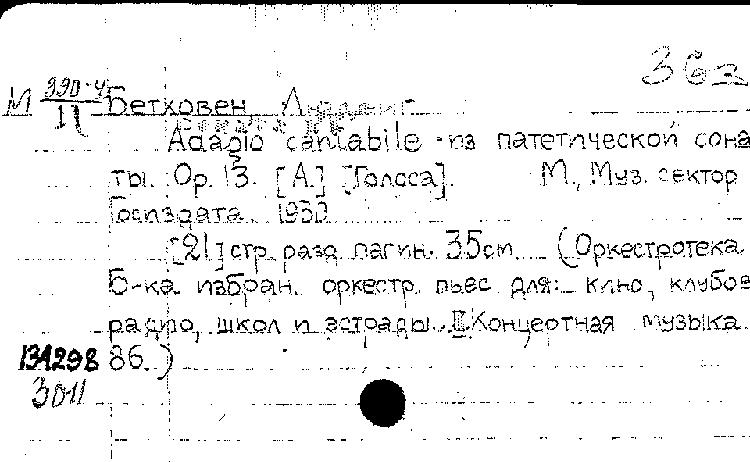 36з
М 990-4 Бетховен, Людвиг
11
Adagio cantabile из патетической сона
ты. Op. 13. [А.] [Голоса]. М., Муз. сектор
Госиздата 1930
[21] стр. разд. пагин. 35см (Оркестротека
Б-ка избран. оркестр. пьес для: кино, клубов
радио, школ и эстрады. II Концертная музыка
134298 86.)
3011